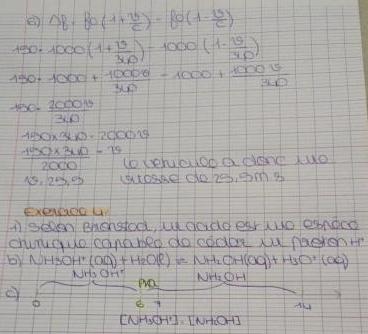 c) Δf = f0(1+v/c) - f0(1-v/c)
150 = 1000(1+v/340) - 1000(1-v/340)
150 = 1000 + 1000v/340 - 1000 + 1000v/340
150 = 2000v/340
150x340 = 2000v
150x340/2000 = v
v = 25,5 Le véhicule a donc une
vitesse de 25,5m.s
Exercice 4:
1) Selon Bronsted, un acide est une espèce
chimique capable de céder un proton H+
b) NH3OH+(aq) + H2O(l) = NH2OH(aq) + H3O+(aq)
NH3OH+ pKa NH2OH
c) 0 6 7 14
[NH3OH+] = [NH2OH]